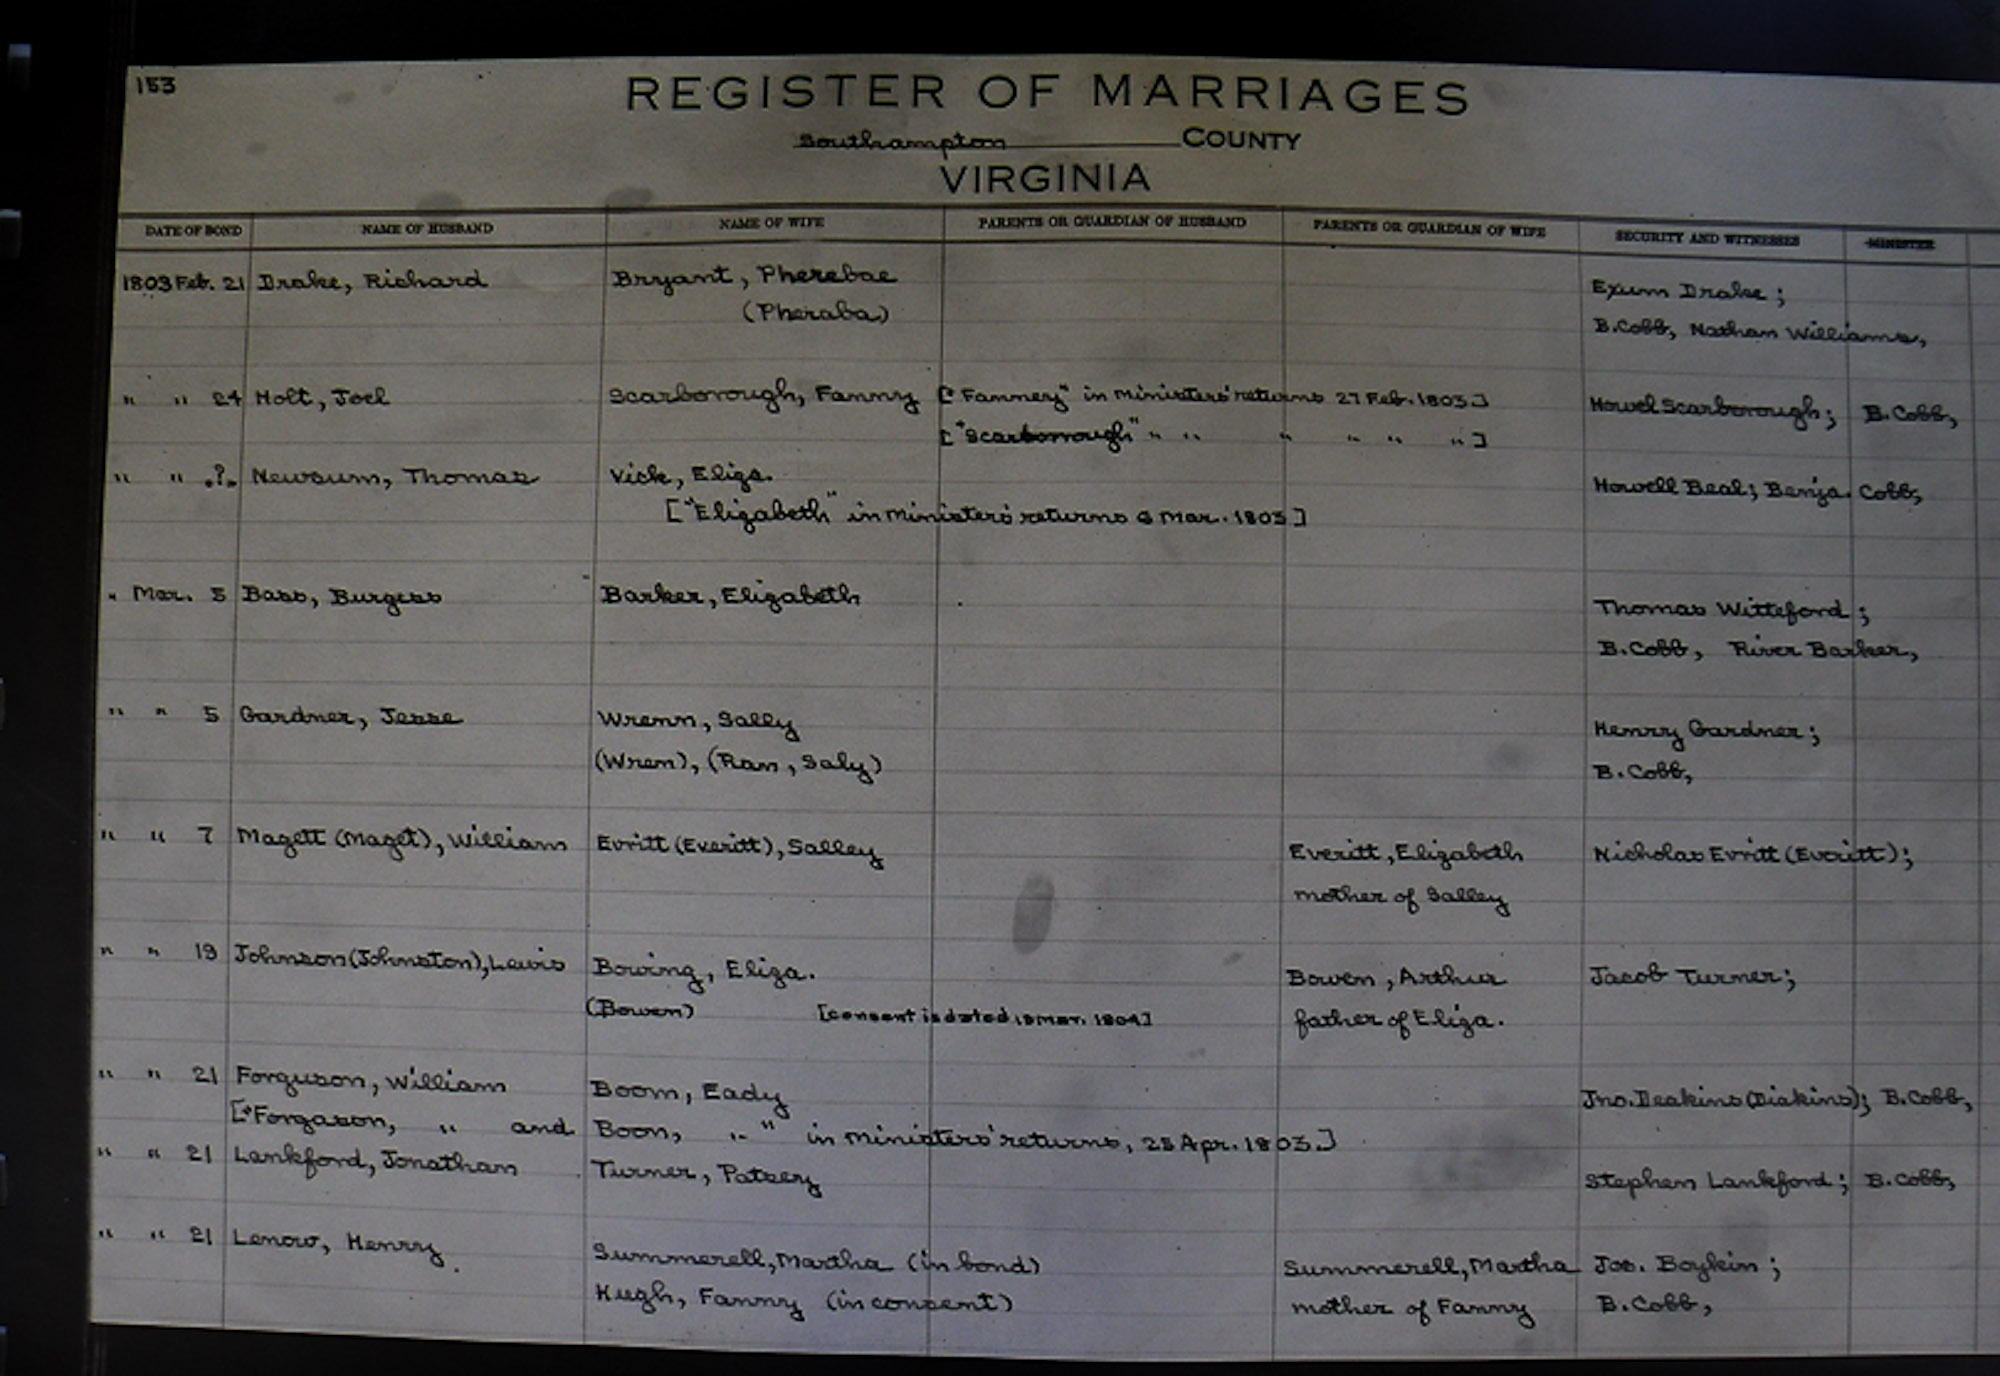 153
REGISTER OF MARRIAGES
Southampton COUNTY
VIRGINIA
DATE OF BOND NAME OF HUSBAND NAME OF WIFE PARENTS OR GUARDIAN OF HUSBAND PARENTS OR GUARDIAN OF WIFE SECURITY AND WITNESSES MINISTER
1803 Feb. 21 Drake, Richard Bryant, Pherebae Exum Drake;
(Pheraba) B. Cobb, Nathan Williams,
" " 24 Holt, Joel Scarborough, Fanny ["Fanney" in ministers' returns 27 Feb. 1803] Howel Scarborough; B. Cobb,
["Scarborrough" " " " " " "]
" " .?. Newsum, Thomas Vick, Eliza. Howell Beal; Benja. Cobb,
["Elizabeth" in ministers' returns 6 Mar. 1803]
" Mar. 5 Bass, Burgess Barker, Elizabeth Thomas Witteford;
B. Cobb, River Barker,
" " 5 Gardner, Jesse Wrenn, Sally Henry Gardner;
(Wren), (Ran, Saly) B. Cobb,
" " 7 Magett (Maget), William Evritt (Everitt), Salley Everitt, Elizabeth Nicholas Evritt (Everitt);
mother of Salley
" " 19 Johnson (Johnston), Lewis Bowing, Eliza. Bowen, Arthur Jacob Turner;
(Bowen) [consent is dated 19 Mar. 1804] father of Eliza.
" " 21 Forguson, William Boom, Eady Jno. Deakins (Diakins); B. Cobb,
["Forgason, " and Boon, " " in ministers' returns, 28 Apr. 1803.]
" " 21 Lankford, Jonathan Turner, Patsey Stephen Lankford; B. Cobb,
" " 21 Lenow, Henry Summerell, Martha (in bond) Summerell, Martha Jos. Boykin;
Hugh, Fanny (in consent) mother of Fanny B. Cobb,